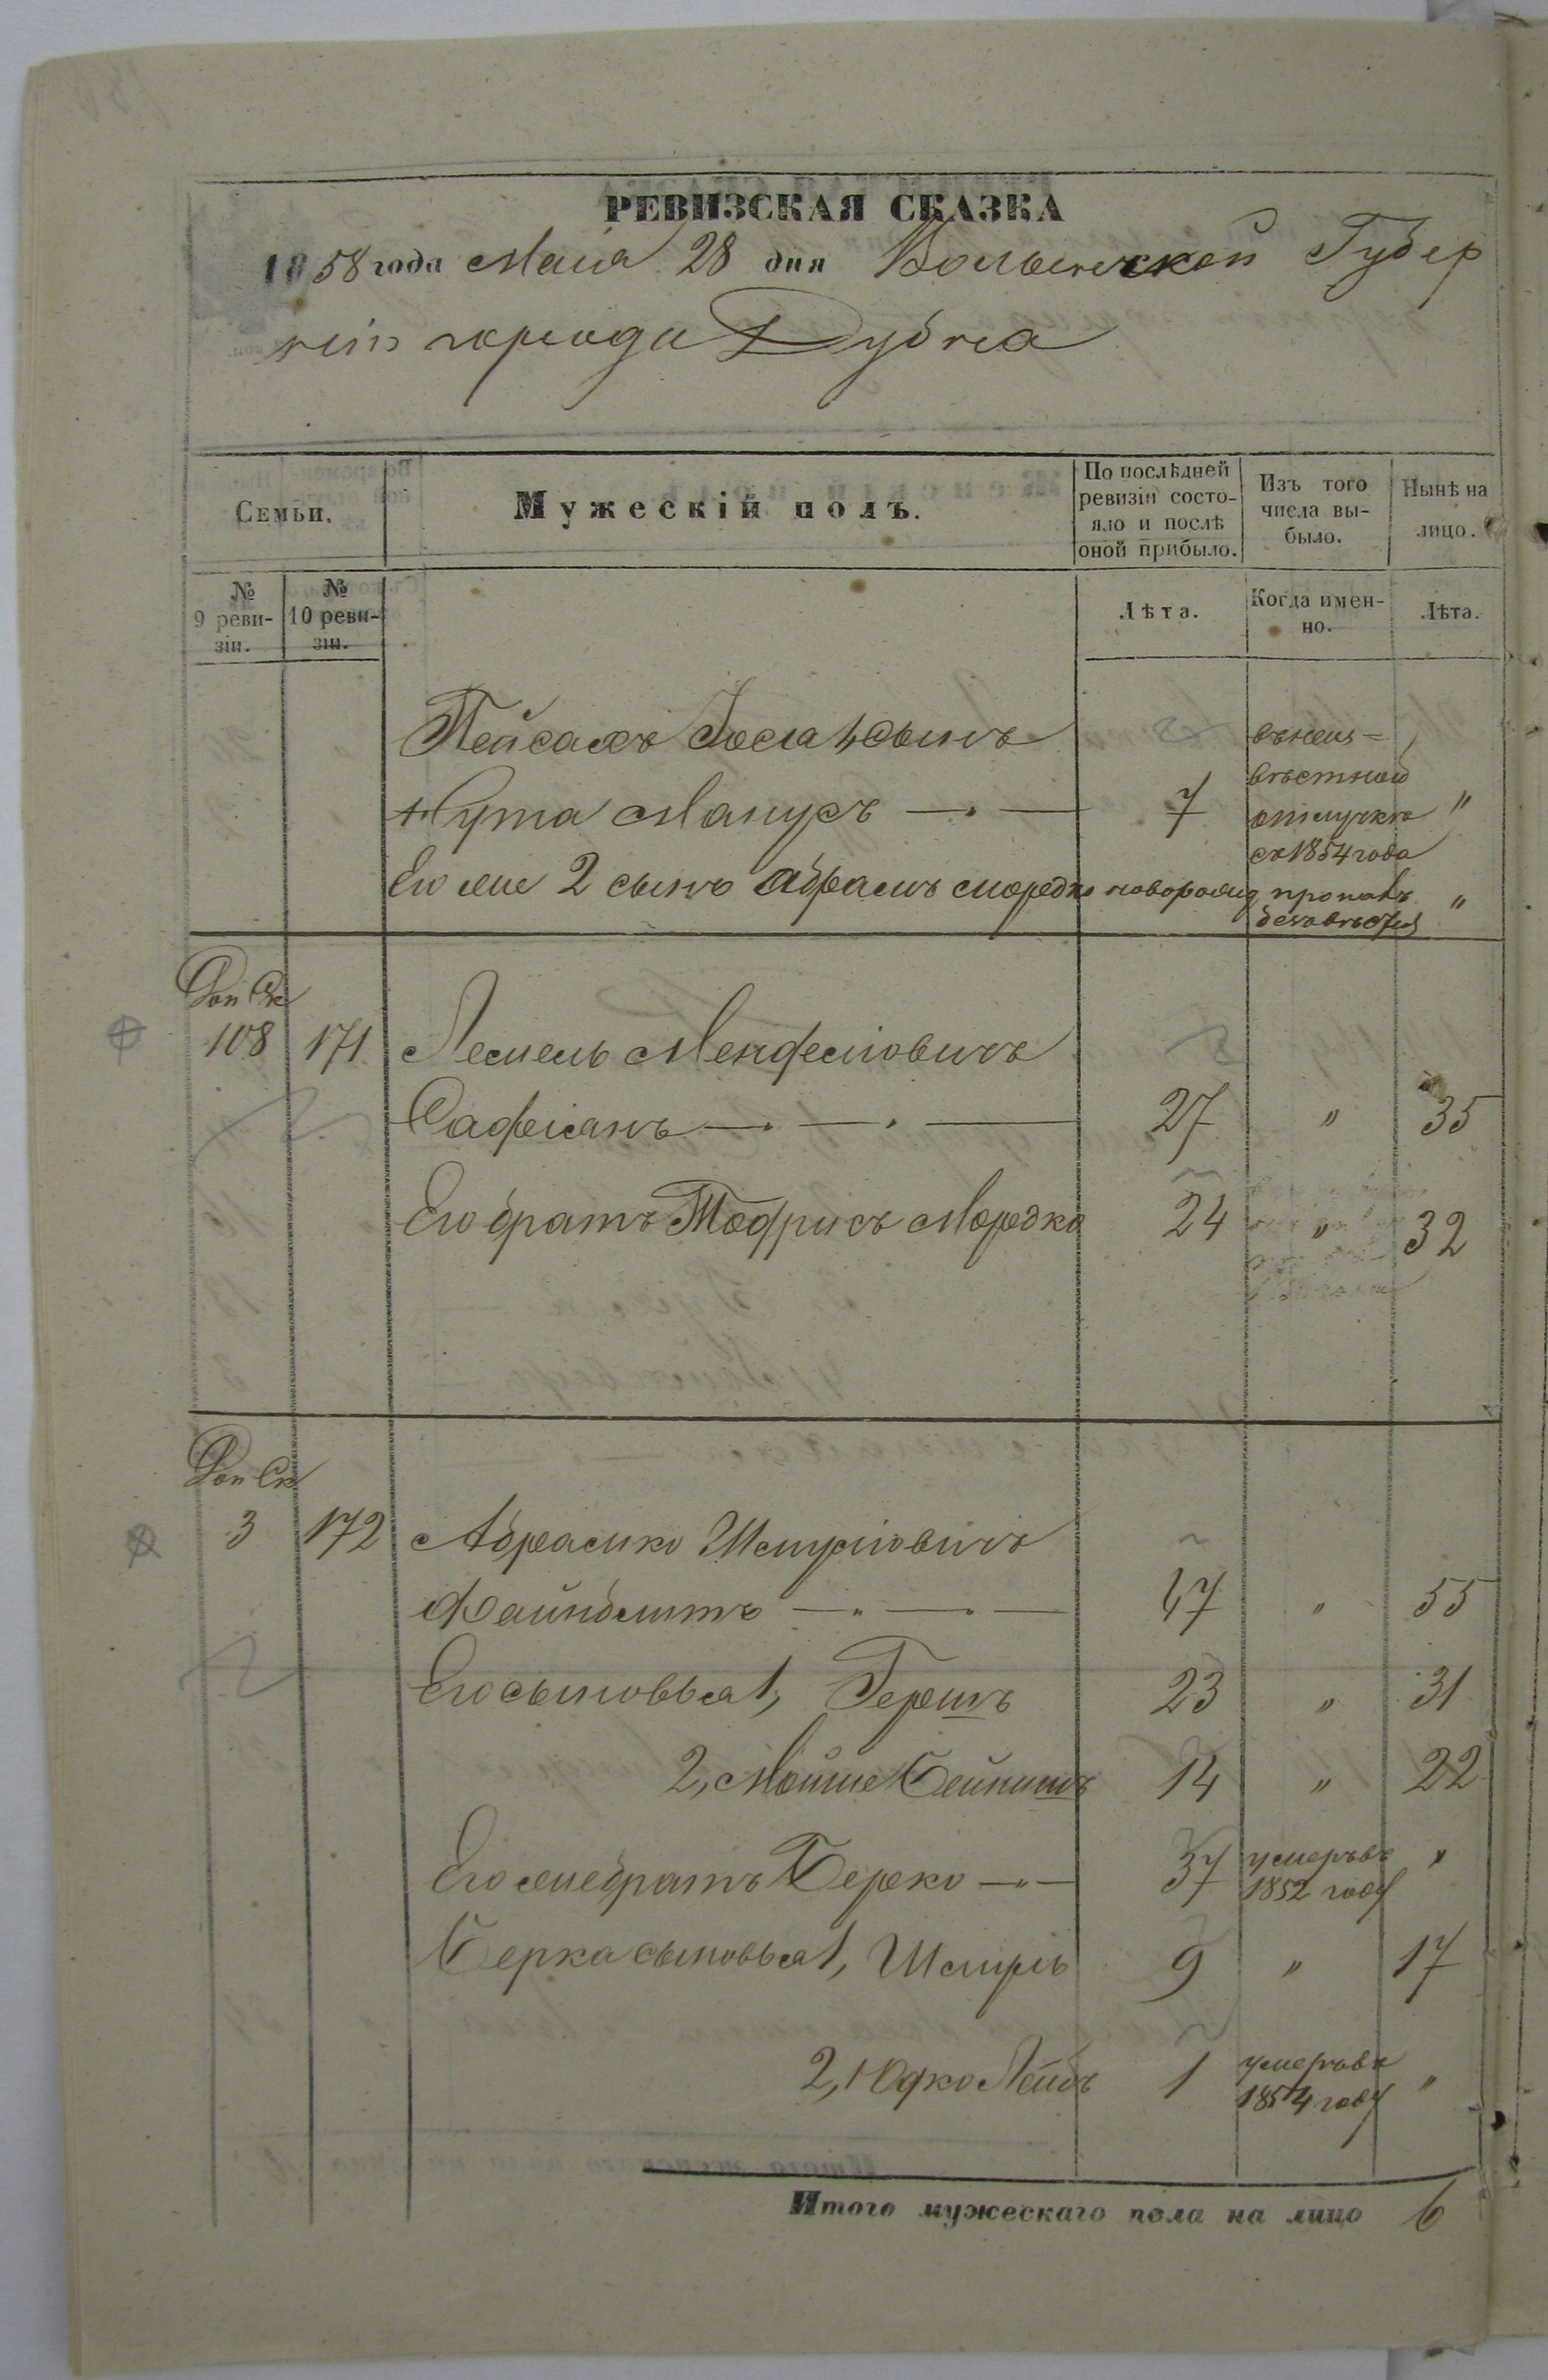 РЕВИЗСКАЯ СКАЗКА
1858 года Маія 28 дня Волынской Губер
ніи города Дубна
Семьи.
Мужескій полъ.
По послѣдней ревизіи состо-
яло и послѣ
оной прибыло.
Изъ того
числа вы-
было.
Нынѣ на
лицо.
№
9 реви-
зіи.
№
10 реви-
зіи.
Лѣта.
Когда имен-
но.
Лѣта.
Пейсахъ Іося 4 сынъ
въ неиз=
вѣстной
Нута Манусъ 7 отлучкѣ "
съ 1854 года
Его же 2 сынъ Абрамъ Мордко новорожд пропалъ "
безъ вѣсти
Доп Ск
108 171 Лемель Менделіовичъ
Сафіанъ 27 " 35
Его братъ Тодрисъ Мордко 24 " 32
Доп Ск
3 172 Абрамко Шмуліовичъ
Файнблитъ 47 " 55
Его сыновья 1, Гершъ 23 " 31
2, Мойше Бейнишъ 14 " 22
Его же братъ Берко 37 умеръ въ "
1852 году
Берка сыновья 1, Шмуль 9 " 17
2, Юдко Лейбъ 1 умеръ въ "
1854 году
Итого мужескаго пола на лицо 6